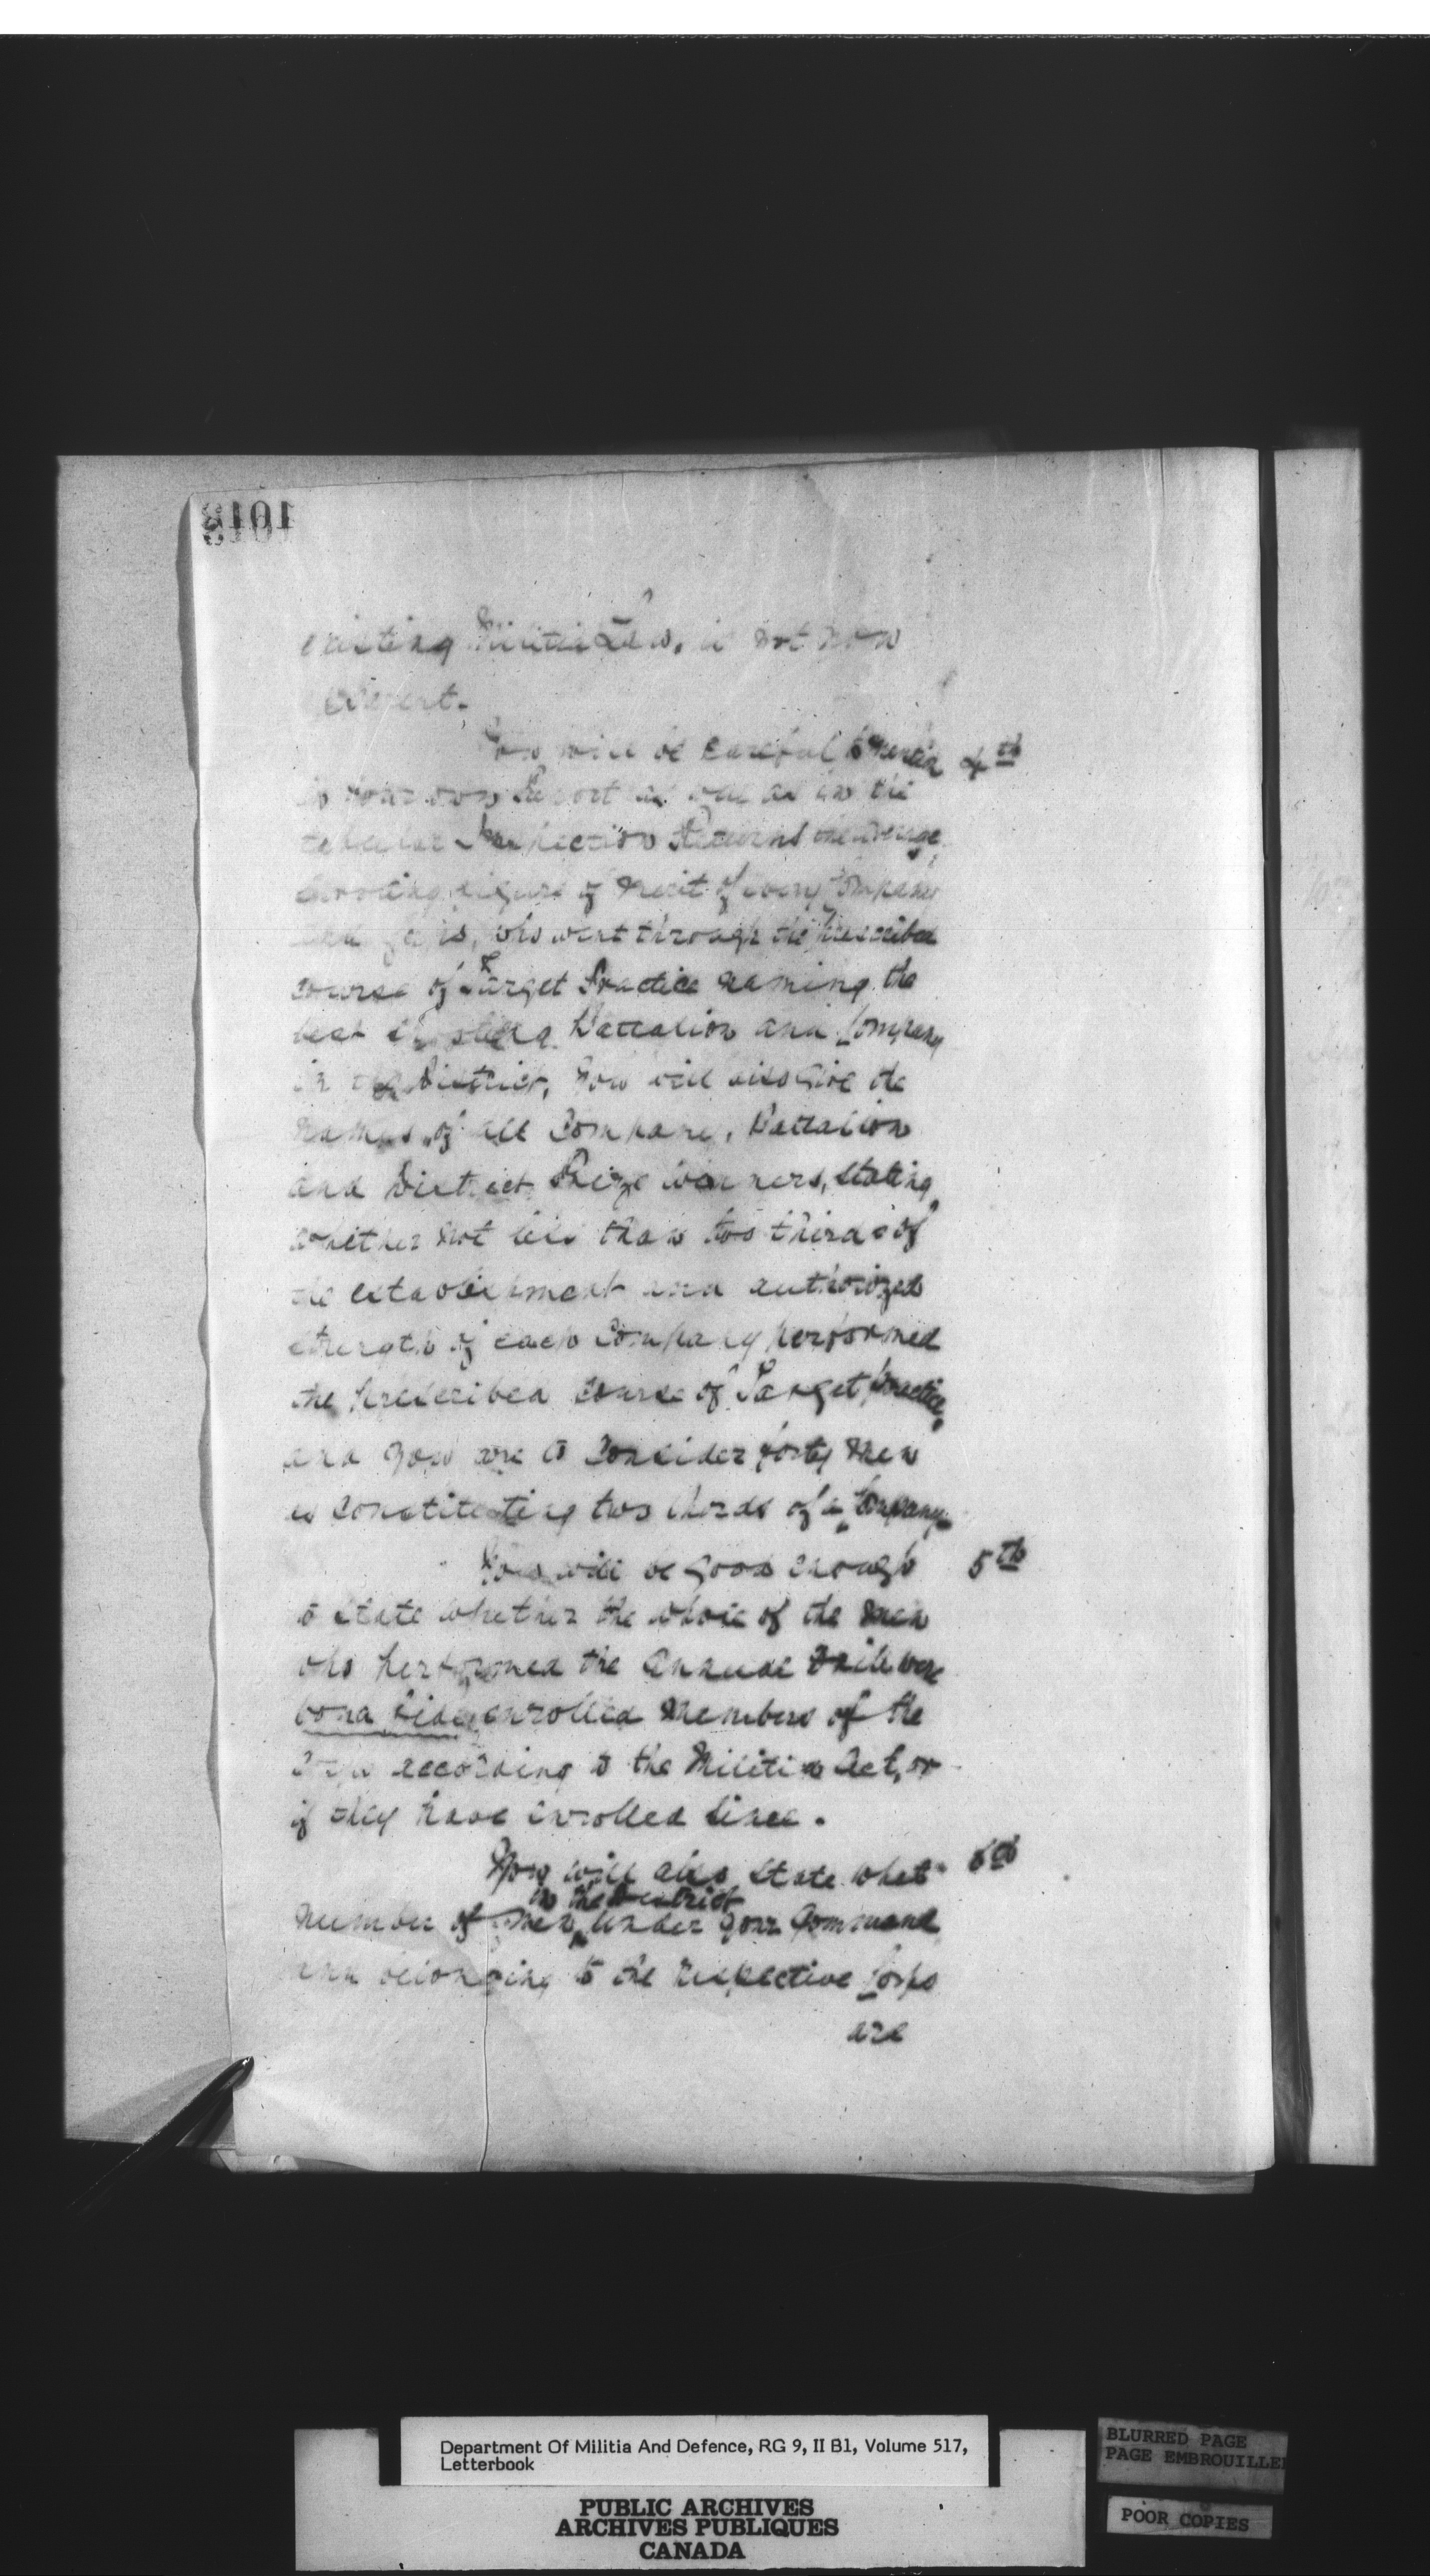 1013
existing Militia Law, is not now
You will be careful to mention 4th
in your own Report as well as in the
tabular Inspection Returns the average
shooting figure of merit of every Company
and Corps, who went through the prescribed
course of Target Practice naming the
best shooting Battalion and Company
in the District, You will also give the
names of all Company, Battalion
and District Prize winners, stating
whether not less than two thirds of
the establishment and authorized
strength of each Company performed
the prescribed course of Target Practice,
and you are to consider forty men
as constituting two thirds of a Company.
You will be good enough 5th
to state whether the whole of the men
who performed the annual Drill were
bona fide enrolled members of the
Corps according to the Militia Act, or
if they have enrolled since.
You will also state what 6th
in the District
number of men under your Command
and belonging to the respective Corps
are
Department Of Militia And Defence, RG 9, II B1, Volume 517,
Letterbook
PUBLIC ARCHIVES
ARCHIVES PUBLIQUES
CANADA
BLURRED PAGE
PAGE EMBROUILLEE
POOR COPIES